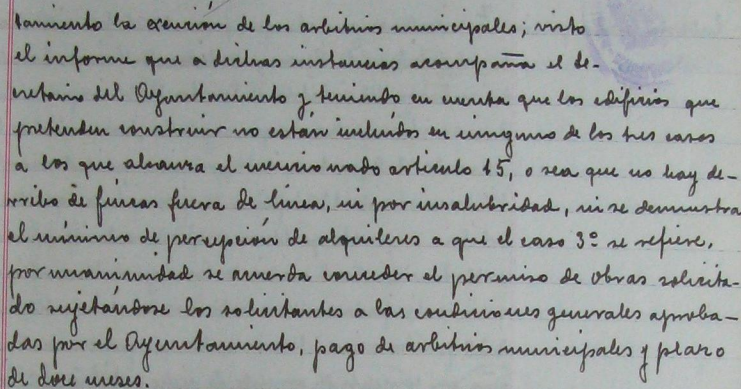 tamiento la exención de los arbitrios municipales; visto
el informe que a dichas instancias acompaña el Se-
cretario del Ayuntamiento y teniendo en cuenta que los edificios que
pretenden construir no están incluídos en ninguno de los tres casos
a los que alcanza el mencionado artículo 15, o sea que no hay de-
rribo de fincas fuera de línea, ni por insalubridad, ni se demuestra
el mínimo de percepción de alquileres a que el caso 3º se refiere,
por unanimidad se acuerda conceder el permiso de obras solicita-
do sujetándose los solicitantes a las condiciones generales aproba-
das por el Ayuntamiento, pago de arbitrios municipales y plazo
de doce meses.